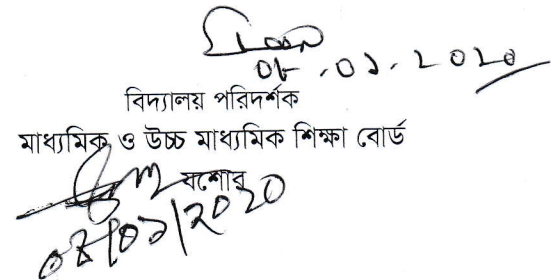 ০৮.০১.২০২০
বিদ্যালয় পরিদর্শক
মাধ্যমিক ও উচ্চ মাধ্যমিক শিক্ষা বোর্ড
যশোর
০৪/০১/২০২০